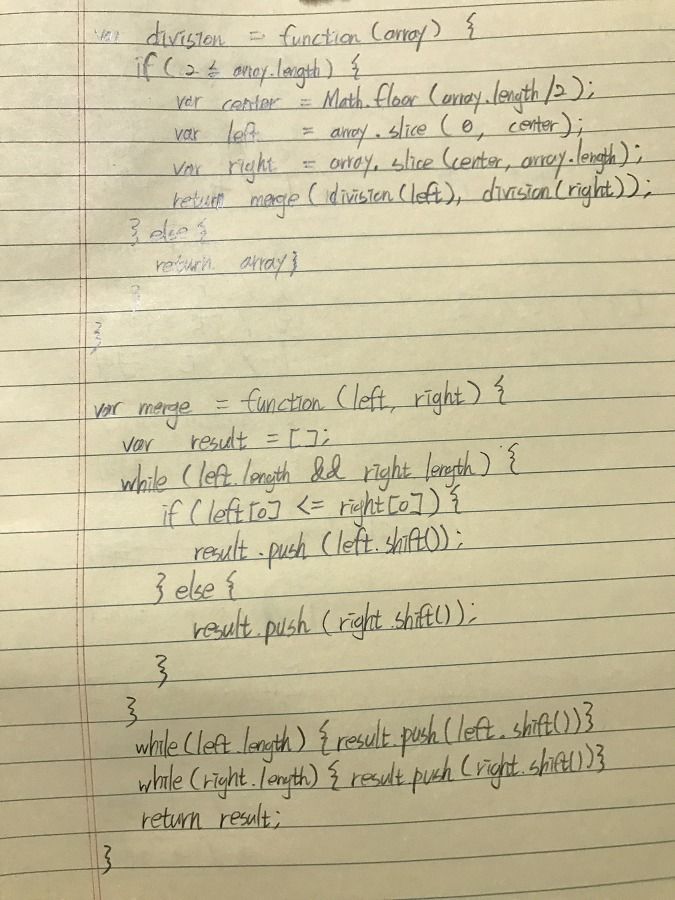 var division = function (array) {
if ( 2 ≤ array.length) {
var center = Math.floor (array.length/2);
var left = array.slice (0, center);
var right = array.slice (center, array.length);
return merge ( division(left), division(right));
} else {
return array}
}
}
var merge = function (left, right) {
var result = [];
while (left.length && right length) {
if (left[0] <= right[0]) {
result.push (left.shift());
} else {
result.push (right.shift());
}
}
while(left.length) {result.push(left.shift())}
while(right.length) { result.push (right.shift())}
return result;
}